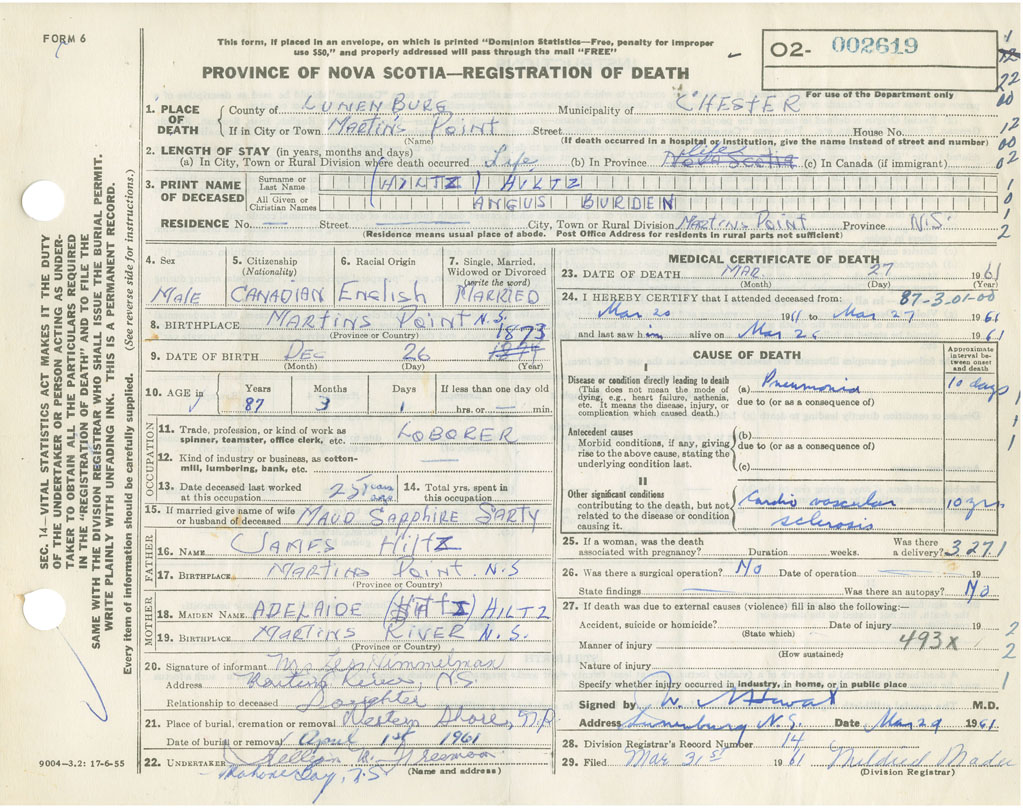 FORM 6
This form, if placed in an envelope, on which is printed "Dominion Statistics—Free, penalty for improper
use $50," and properly addressed will pass through the mail "FREE"
PROVINCE OF NOVA SCOTIA—REGISTRATION OF DEATH
O2- 002619
For use of the Department only
1. PLACE OF DEATH County of LUNENBURG Municipality of CHESTER
If in City or Town Martin's Point Street House No.
(Name) (If death occurred in a hospital or institution, give the name instead of street and number)
2. LENGTH OF STAY (in years, months and days)
(a) In City, Town or Rural Division where death occurred Life (b) In Province Life Nova Scotia (c) In Canada (if immigrant)
3. PRINT NAME OF DECEASED Surname or Last Name (HILTZ) HILTZ
All Given or Christian Names ANGUS BURDEN
RESIDENCE No. — Street — City, Town or Rural Division Martins Point Province N.S.
(Residence means usual place of abode. Post Office Address for residents in rural parts not sufficient)
4. Sex Male
5. Citizenship (Nationality) CANADIAN
6. Racial Origin English
7. Single, Married, Widowed or Divorced (write the word) MARRIED
8. BIRTHPLACE MARTINS POINT N.S.
(Province or Country)
1873
9. DATE OF BIRTH DEC 26
(Month) (Day) (Year)
10. AGE in Years 87 Months 3 Days 1 If less than one day old hrs. or — min.
OCCUPATION
11. Trade, profession, or kind of work as spinner, teamster, office clerk, etc. LOBORER
12. Kind of industry or business, as cotton-mill, lumbering, bank, etc. —
13. Date deceased last worked at this occupation 25 years
14. Total yrs. spent in this occupation
15. If married give name of wife or husband of deceased MAUD SAPPHIRE SARTY
FATHER
16. NAME JAMES Hiltz
17. BIRTHPLACE MARTINS Point N.S
(Province or Country)
MOTHER
18. MAIDEN NAME ADELAIDE HILTZ
19. BIRTHPLACE MARTINS RIVER N.S.
(Province or Country)
20. Signature of informant Mrs Himmelman
Address River, NS
Relationship to deceased Daughter
21. Place of burial, cremation or removal Western Shore,
Date of burial or removal April 1st 1961
22. UNDERTAKER
Mahone Bay, N.S
(Name and address)
MEDICAL CERTIFICATE OF DEATH
23. DATE OF DEATH MAR 27 1961
(Month) (Day) (Year)
24. I HEREBY CERTIFY that I attended deceased from: 87-3-01-00
Mar 20 1961 to Mar 27 1961
and last saw him alive on Mar 26 1961
CAUSE OF DEATH
Approximate interval between onset and death
I
Disease or condition directly leading to death (a) Pneumonia 10 days
(This does not mean the mode of dying, e.g., heart failure, asthenia, etc. It means the disease, injury, or complication which caused death.) due to (or as a consequence of)
Antecedent causes (b)
Morbid conditions, if any, giving rise to the above cause, stating the underlying condition last. due to (or as a consequence of)
(c)
II
Other significant conditions contributing to the death, but not related to the disease or condition causing it. Cardio vascular sclerosis 10 yrs
25. If a woman, was the death associated with pregnancy? Duration weeks. Was there a delivery? 3271
26. Was there a surgical operation? No Date of operation — 19
State findings — Was there an autopsy? No
27. If death was due to external causes (violence) fill in also the following:—
Accident, suicide or homicide? Date of injury 19
(State which)
493x
Manner of injury
(How sustained)
Nature of injury
Specify whether injury occurred in industry, in home, or in public place
Signed by M.D.
Address Lunenburg N.S. Date Mar 29 1961.
28. Division Registrar's Record Number 14
29. Filed Mar 31st 1961 Mildred
(Division Registrar)
SEC. 14—VITAL STATISTICS ACT MAKES IT THE DUTY
OF THE UNDERTAKER OR PERSON ACTING AS UNDER-
TAKER TO OBTAIN ALL THE PARTICULARS REQUIRED
IN THE "REGISTRATION OF DEATH" AND TO FILE THE
SAME WITH THE DIVISION REGISTRAR WHO SHALL ISSUE THE BURIAL PERMIT.
WRITE PLAINLY WITH UNFADING INK. THIS IS A PERMANENT RECORD.
Every item of information should be carefully supplied. (See reverse side for instructions.)
9004—3.2: 17-6-55